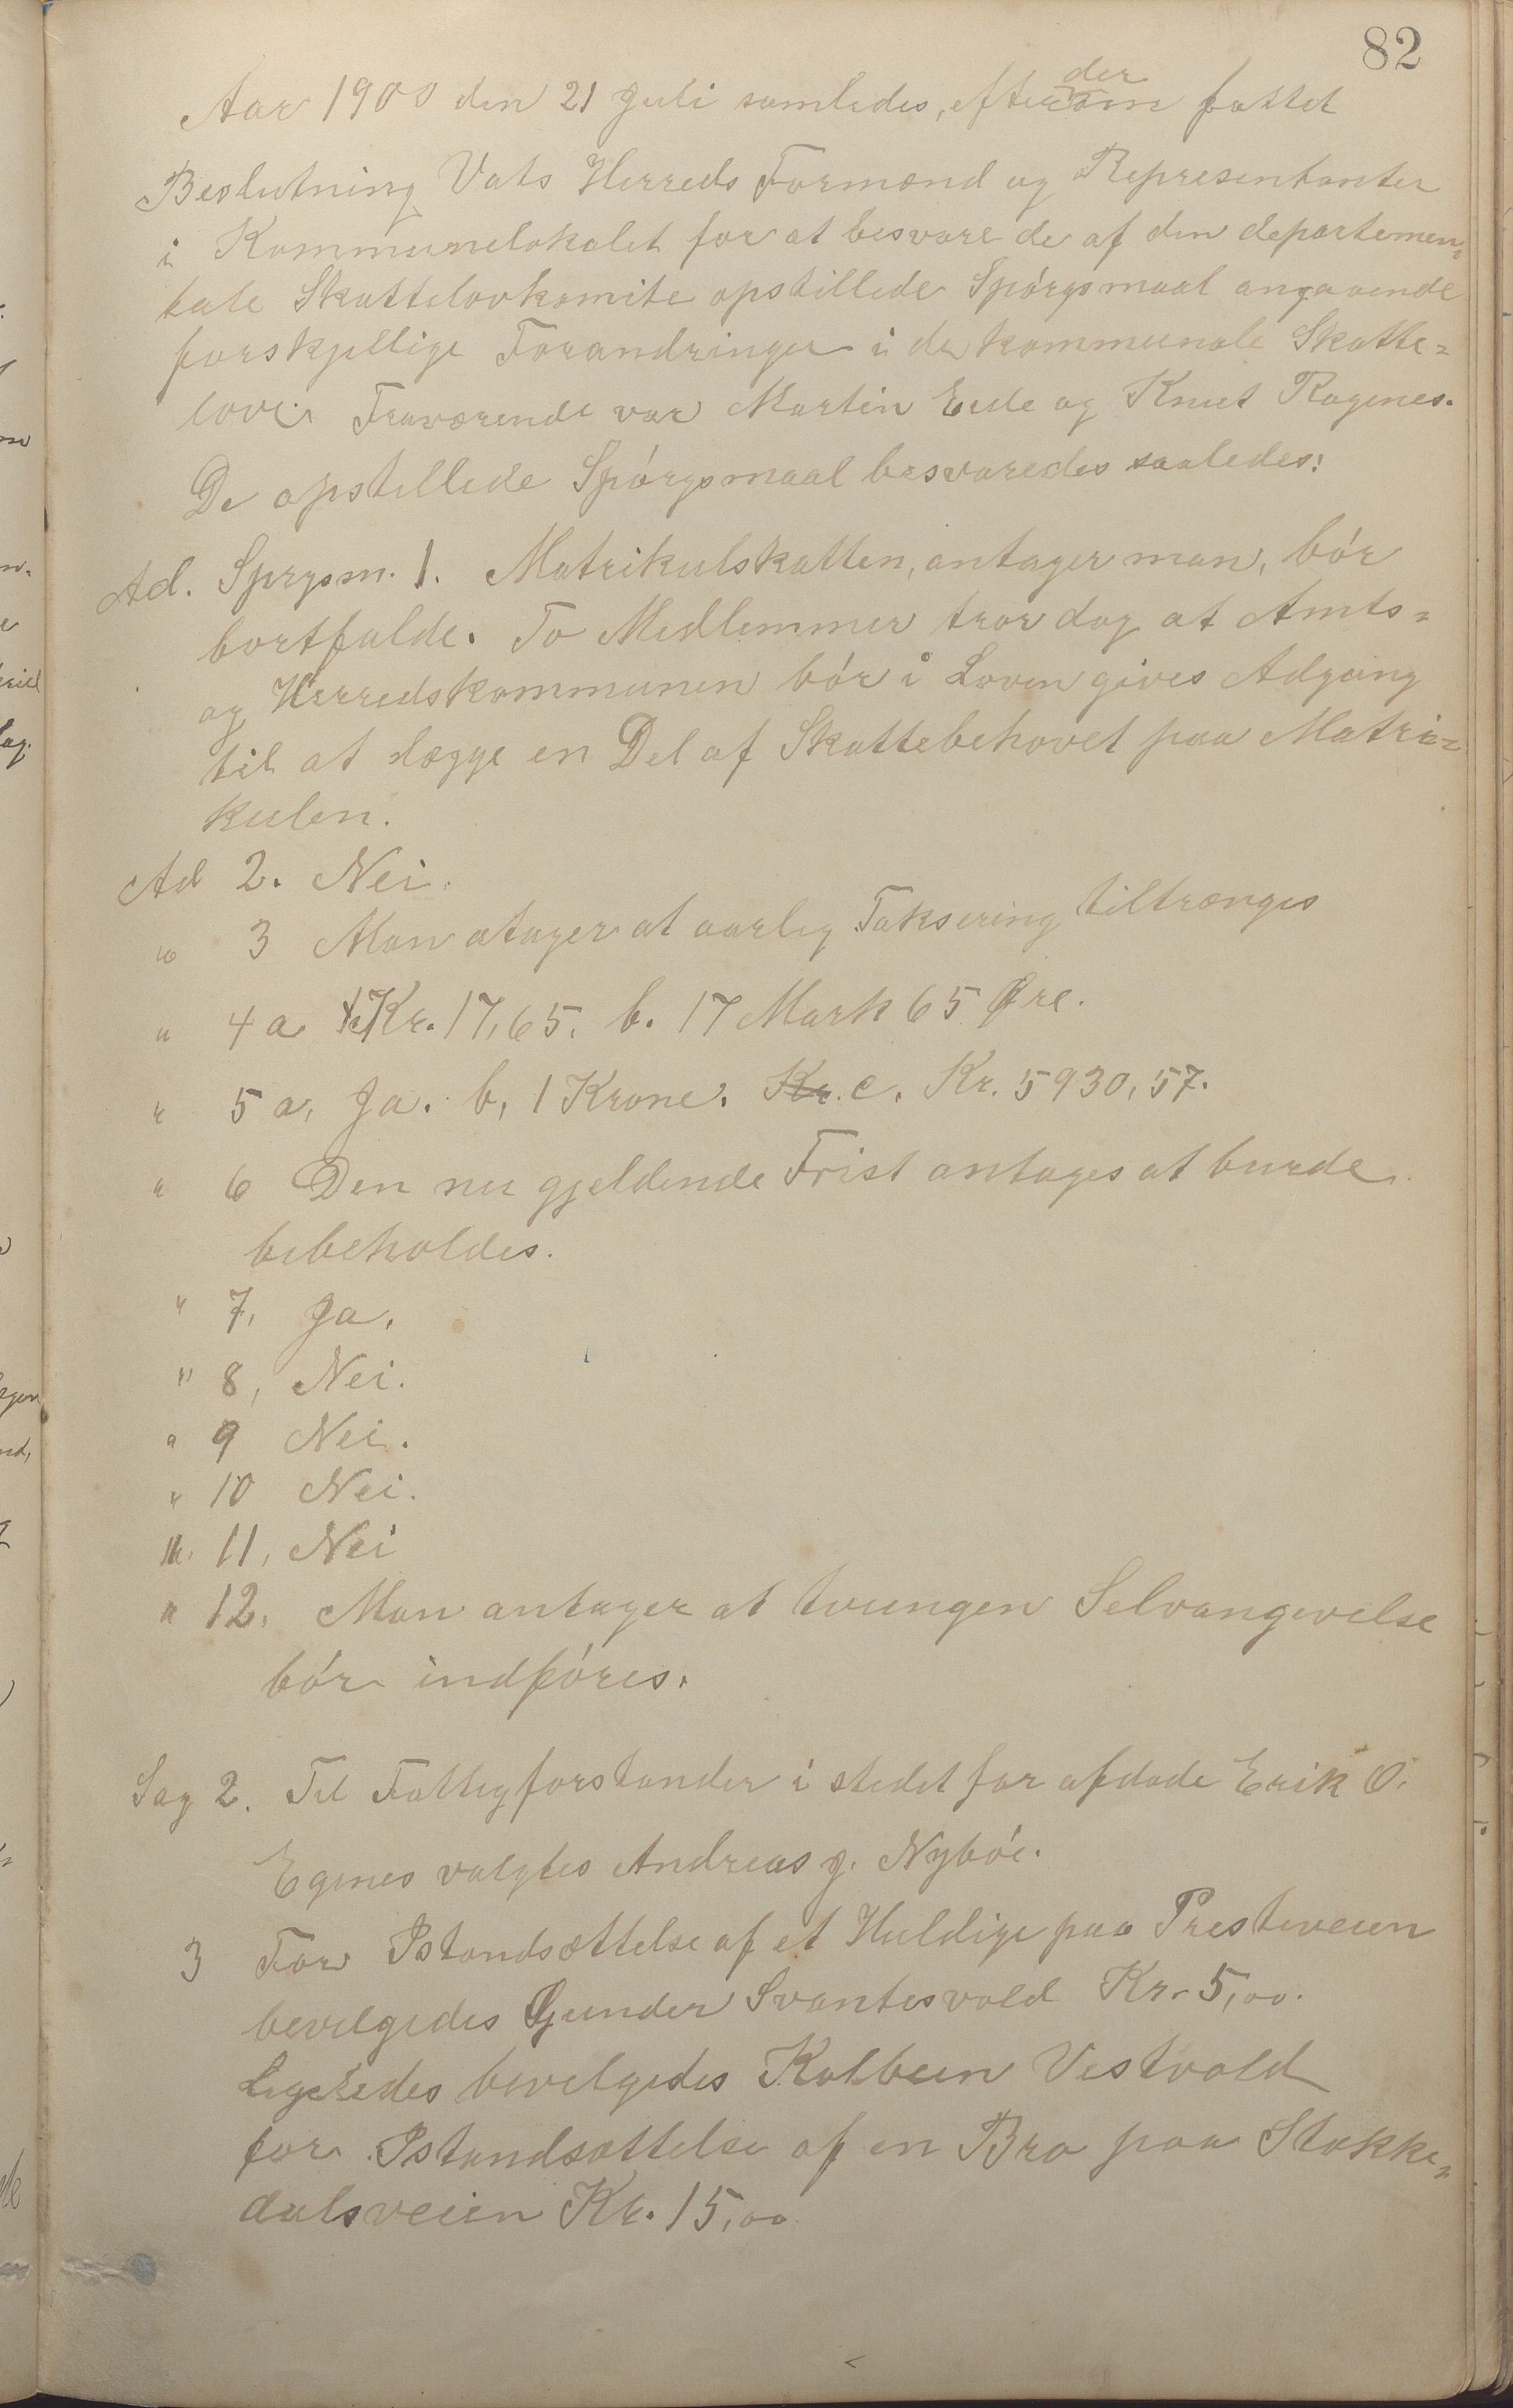 82
Aar 1900 den 21 Juli samledes, efter der om fattet
Beslutning Vats Herreds Formænd og Representanter
i Kommunelokalet for at besvare de af den departemen=
tale Skattelovkomite opstillede Spórgsmaal angaaende
forskjellige Forandringer i de kommunale Skatte=
love. Fraværende var Martin Eide og Knut Ragnes.
De opstillede Spórgsmaal besvaredes saaledes:
Ad. Sprgsm. 1. Matrikulskatten, antager man, bór
bortfalde. To Medlemmer tror dog at Amts=
og Herredskommunen bór i Loven gives Adgang
til at lægge en Del af Skattebehovet paa Matri=
kulen.
Ad 2. Nei.
" 3 Man atager at aarlig Taksering tiltrænges
" 4 a Kr. 17,65. b. 17 Mark 65 Øre.
" 5 a, Ja. b, 1 Krone. Kr. c. Kr. 5930,57.
" 6 Den nu gjeldende Frist antages at burde
bibeholdes.
" 7, Ja.
" 8, Nei.
" 9 Nei.
" 10 Nei.
" 11, Nei
" 12. Man antager at tvungen Selvangivelse
bór indfóres.
Sag 2. Til Fattigforstander i stedet for afdøde Erik O.
Egenes valgtes Andreas J. Nybóe.
3 For Istandsættelse af et Huldige paa Presteveien
bevilgedes Gunder Svantesvold Kr. 5,00.
Ligeledes bevilgedes Kolbein Vestvold
for Istandsættelse af en Bro paa Stakke=
dalsveien Kr. 15,00